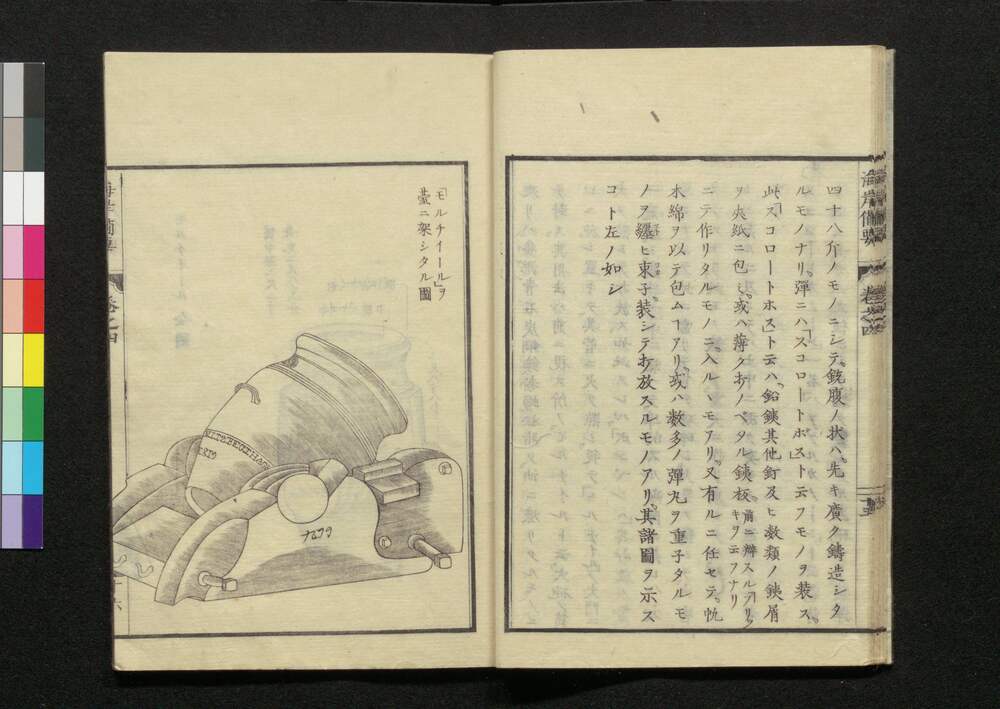 四十八斤ノモノニシテ、銃腹ノ状ハ、先キ廣ク鑄造シタ
ルモノナリ、彈ニハ「スコロートホスト云フモノヲ装ス、
此「スコロートホスト云ハ、鉛鉄其他釘及ヒ数類ノ鉄屑
ヲ夾紙ニ包ミ、或ハ薄ク打ノベタル鉄板
ニテ作リタルモノニ、入ルヽモアリ、又有ルニ任セテ、帆
木綿ヲ以テ包ムヿアリ、或ハ数多ノ彈丸ヲ重子タルモ
ノヲ纏ヒ束子、装シテ打放スルモノアリ、其諸圖ヲ示ス
コト左ノ如シ
「モルチイール」ヲ
臺ニ架シタル圖
海岸備要
巻之四